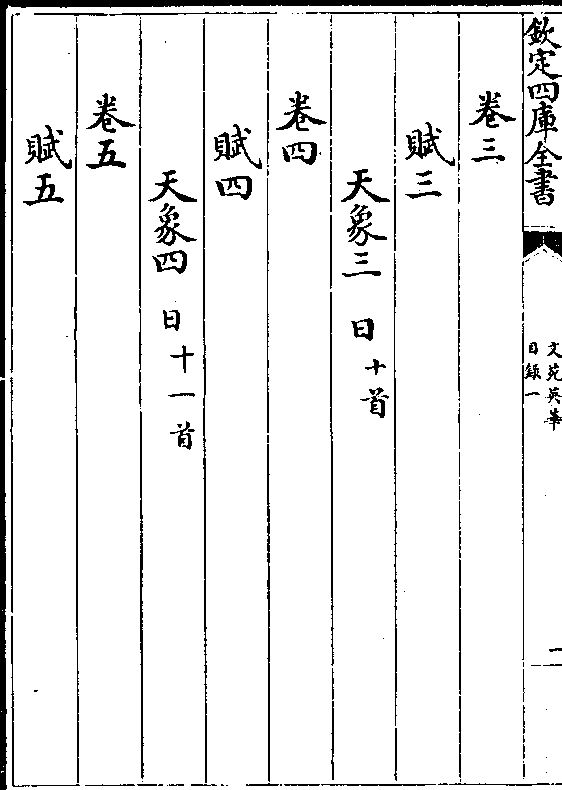 欽定四庫全書
文苑英華
目錄一
一
卷三
賦三
天象三 日 十首
卷四
賦四
天象四 日 十一首
卷五
賦五